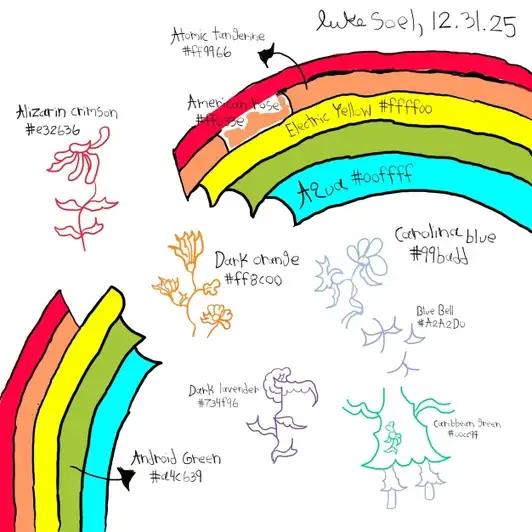 luke Soel, 12.31.25
Atomic tangerine
#ff9966
American rose
#ff033e
Electric Yellow #ffff00
Aqua #00ffff
Alizarin crimson
#e32636
Dark orange
#ff8c00
Carolina blue
#99badd
Blue Bell
#A2A2D0
Dark lavender
#734f96
Caribbean green
Android Green
#a4c639